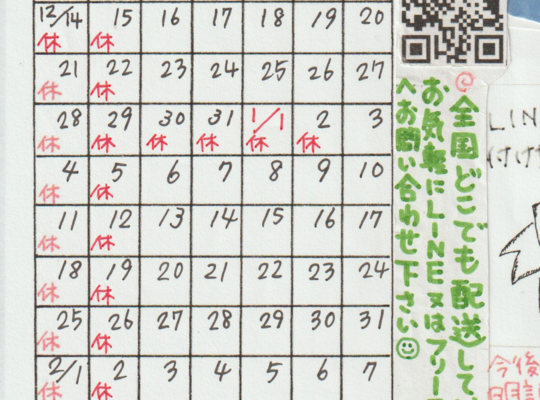 12/14 15 16 17 18 19 20
休 休
21 22 23 24 25 26 27
休 休
28 29 30 31 1/1 2 3
休 休 休 休 休 休
4 5 6 7 8 9 10
休 休
11 12 13 14 15 16 17
休 休
18 19 20 21 22 23 24
休 休
25 26 27 28 29 30 31
休 休
2/1 2 3 4 5 6 7
休 休
全国どこでも配送して
お気軽にLINE又はフリー
へお問い合わせ下さい
LIN
付け
今後